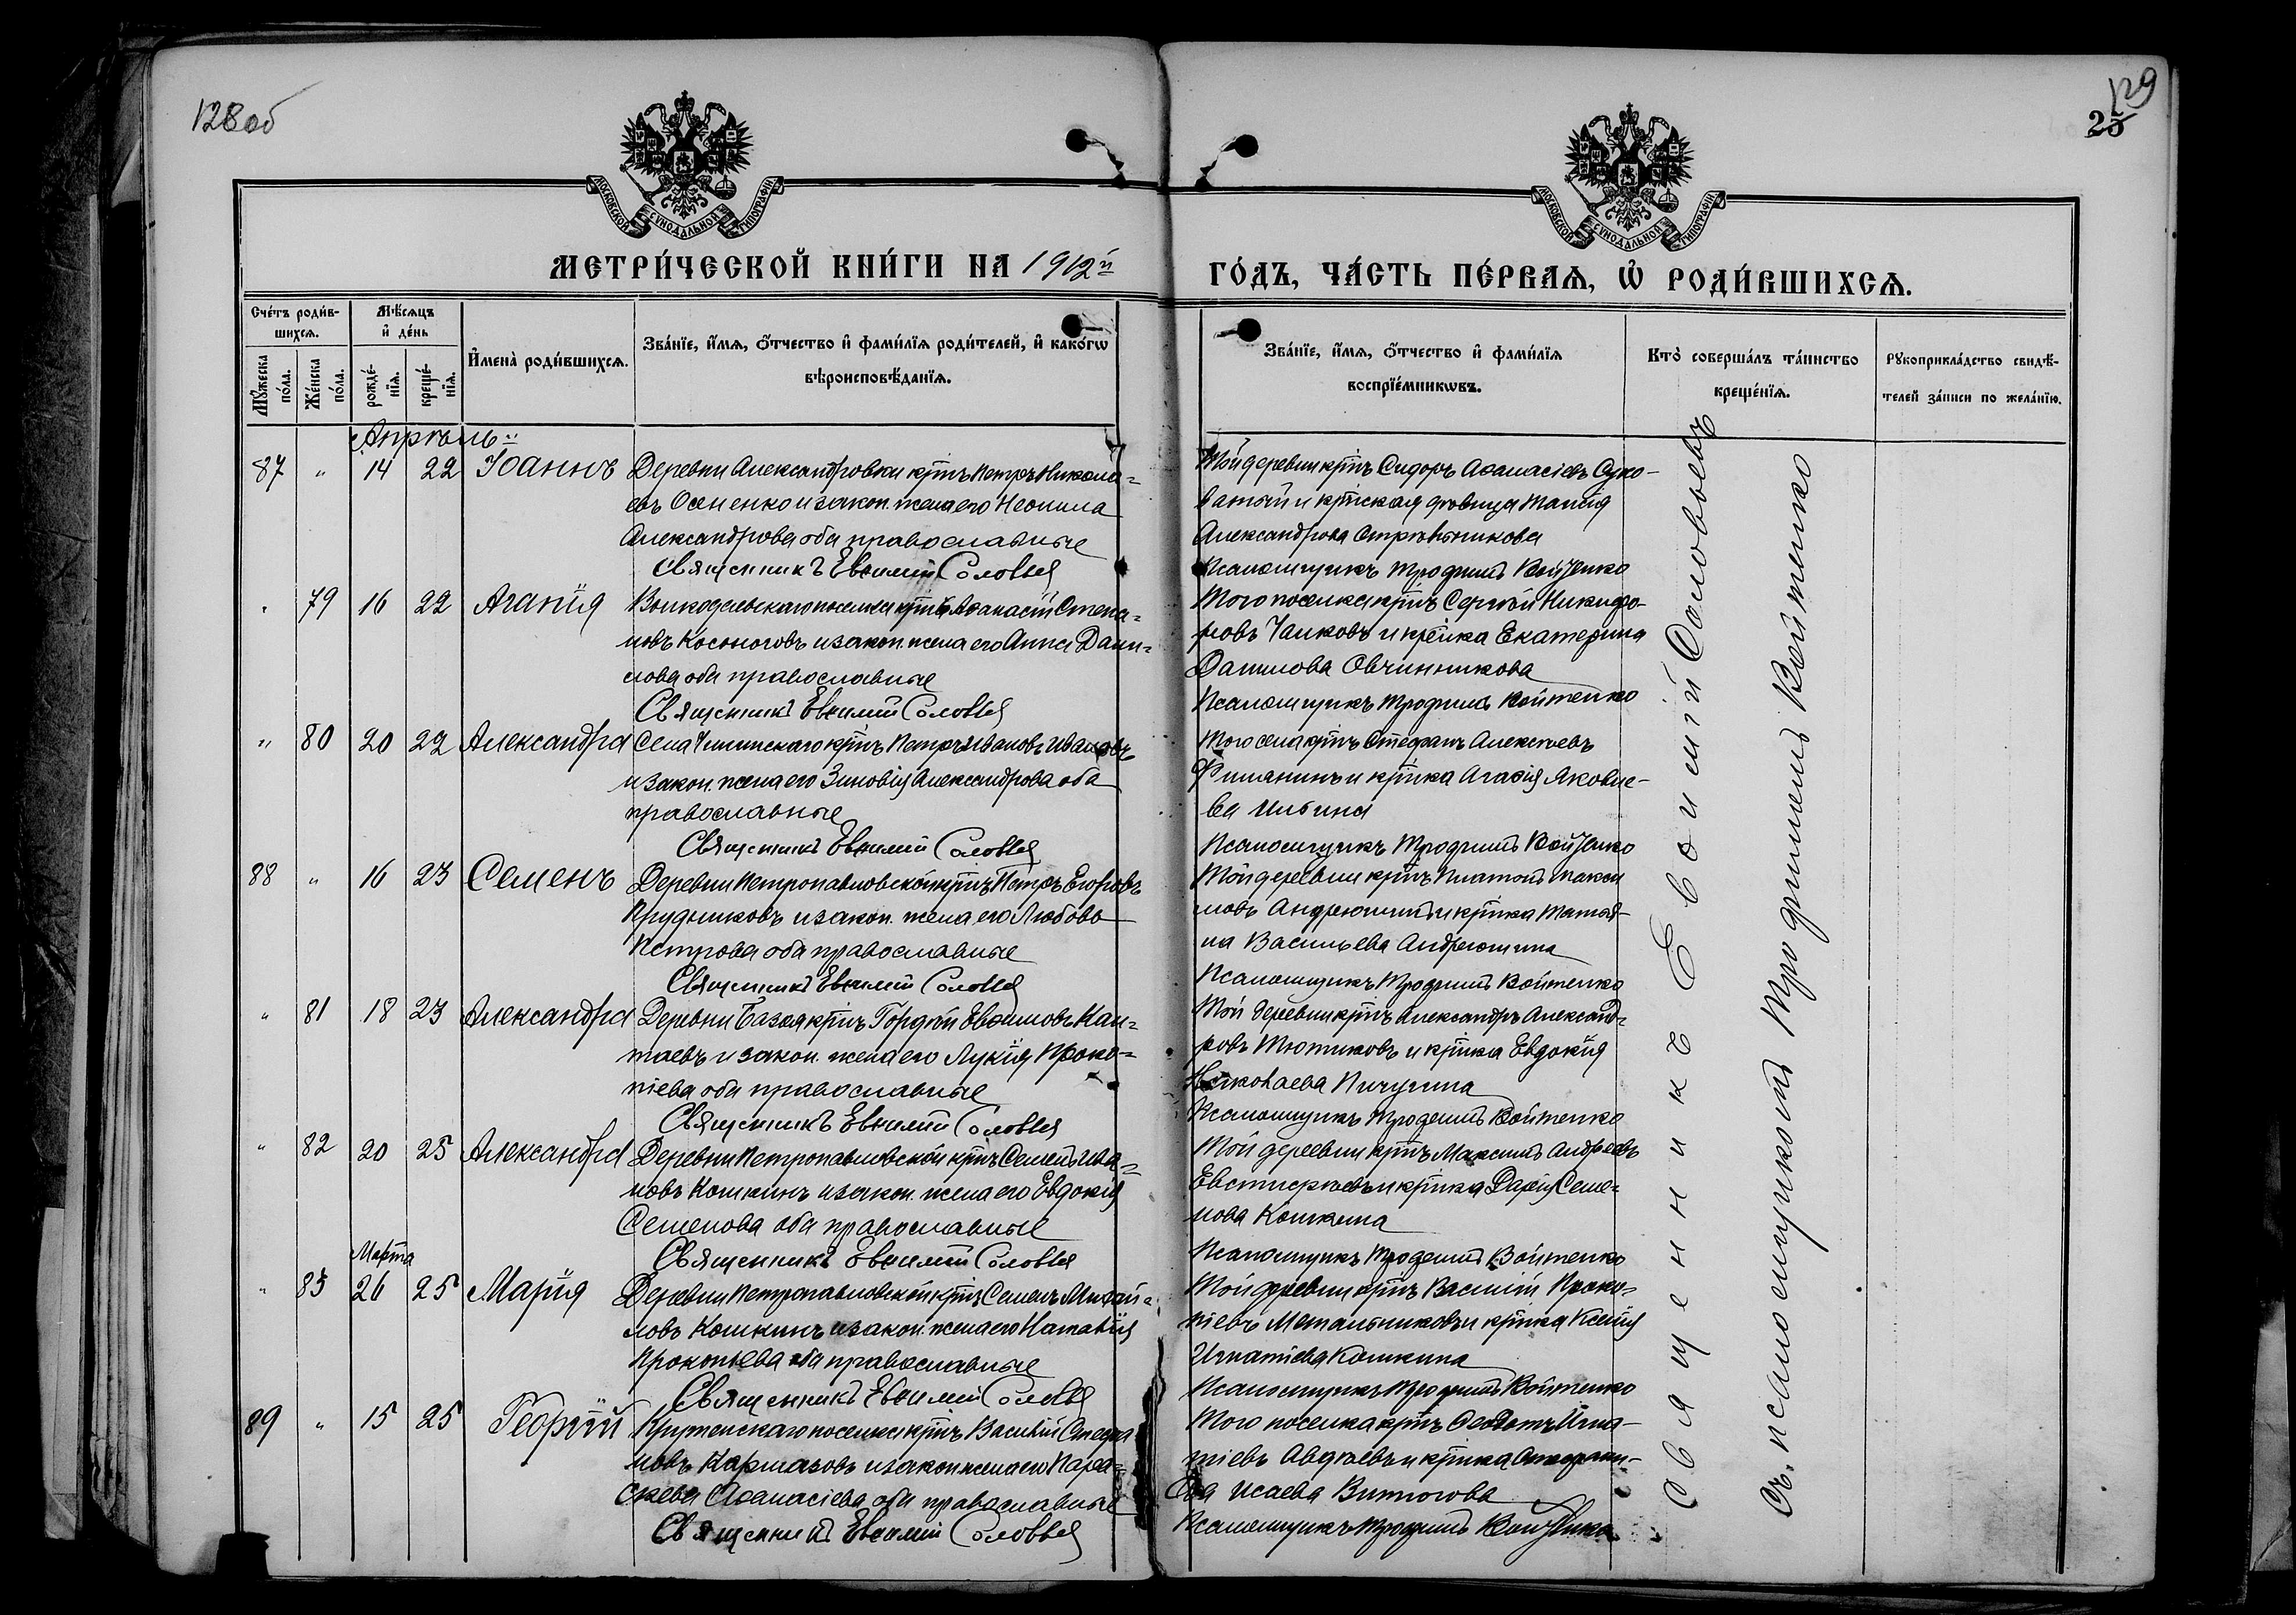 128 об
129
25
МОСКОВСКОЙ СѴНОДАЛЬНОЙ ТИПОГРАФІИ
МОСКОВСКОЙ СѴНОДАЛЬНОЙ ТИПОГРАФІИ
МЕТРИ́ЧЕСКОЙ КНИ́ГИ НА 1912й
ГО́ДЪ, ЧА́СТЬ ПЕ́РВАѦ, Ѡ҆ РОДИ́ВШИХСѦ.
Сче́тъ роди́в-
шихсѧ.
Мѣ́сѧцъ
и҆ де́нь
Мꙋ́жеска
по́ла.
Же́нска
по́ла.
рожде́-
нїѧ.
креще́-
нїѧ.
И҆мена̀ роди́вшихсѧ.
Зва́нїе, и҆́мѧ, ѻ҆́тчество и҆ фами́лїѧ роди́телей, и҆ како́гѡ
вѣроисповѣ́данїѧ.
Зва́нїе, и҆́мѧ, ѻ҆́тчество и҆ фами́лїѧ
воспрїе́мникѡвъ.
Кто̀ соверша́лъ та́инство
креще́нїѧ.
Рꙋкоприкла́дство свидѣ́-
телей за́писи по жела́нїю.
Апрѣль
87 " 14 22 Іоаннъ Деревни Александровки крпъ Петръ Никола=
евъ Осененко и закон. жена его Неонила
Александрова оба православные
Священникъ Евѳимій Соловьев
Той деревни крпъ Сидоръ Аѳанасіевъ Суко-
ватый и крпская дѣвица
Александрова
Псаломщикъ Трофимъ Войтенко
" 79 16 22 Агапія Волкодавскаго поселка крпъ Аѳанасій Степа=
новъ Косоноговъ и закон. жена его Анна Дани=
лова оба православные
Священникъ Евѳимій Соловьев
Того поселка крпъ Сергѣй Никифо-
ровъ Чалковъ и крпка Екатерина
Данилова Овчинникова
Псаломщикъ Трофимъ Войтенко
" 80 20 22 Александра Села крпъ Петръ Ивановъ Ивановъ
и закон. жена его Зиновія Александрова оба
православные
Священникъ Евѳимій Соловьев
Того села крпъ Стефанъ Алексѣевъ
и крпка Агаѳія Яковле-
ва Ильина
Псаломщикъ Трофимъ Войтенко
88 " 16 23 Семенъ Деревни Петропавловской крпъ Петръ Егоровъ
Прудниковъ и закон. жена его Любовь
Петрова оба православные
Священникъ Евѳимій Соловьев
Той деревни крпъ Платонъ Макси
мовъ Андрюшинъ и крпка Татья-
на Васильева Андрюшина
Псаломщикъ Трофимъ Войтенко
" 81 18 23 Александра Деревни Базоя крпъ Гордѣй Евѳимовъ Кан=
таевъ и закон. жена его Лукія Проко=
піева оба православные
Священникъ Евѳимій Соловьев
Той деревни крпъ Александръ Александ=
ровъ Тютиковъ и крпка Евдокія
Николаева Пичугина
Псаломщикъ Трофимъ Войтенко
" 82 20 25 Александра Деревни Петропавловской крпъ Семенъ Ива=
новъ Кошкинъ и закон. жена его Евдокія
Семенова оба православные
Священникъ Евѳимій Соловьев
Той деревни крпъ Максимъ Андреевъ
Евстифѣевъ и крпка Дарія Семе=
нова Кошкина
Псаломщикъ Трофимъ Войтенко
Марта
" 83 26 25 Марія Деревни Петропавловской крпъ Семенъ Михай=
ловъ Кошкинъ и закон. жена его Наталія
Прокопьева оба православные
Священникъ Евѳимій Соловьев
Той деревни крпъ Василій Проко=
піевъ Метальниковъ и крпка Ксенія
Игнатіева Кошкина
Псаломщикъ Трофимъ Войтенко
89 " 15 25 Георгій поселка крпъ Василій Стефа
новъ Кармазовъ и закон. жена его Пара=
скева Аѳанасіева оба православные
Священникъ Евѳимій Соловьев
Того поселка крпъ Ѳеодотъ Игна-
тіевъ Авдѣевъ и крпка Стефани-
да Исаева Витюгова
Псаломщикъ Трофимъ Войтенко
Священникъ Евѳимій Соловьевъ
Съ псаломщикомъ Трофимомъ Войтенко